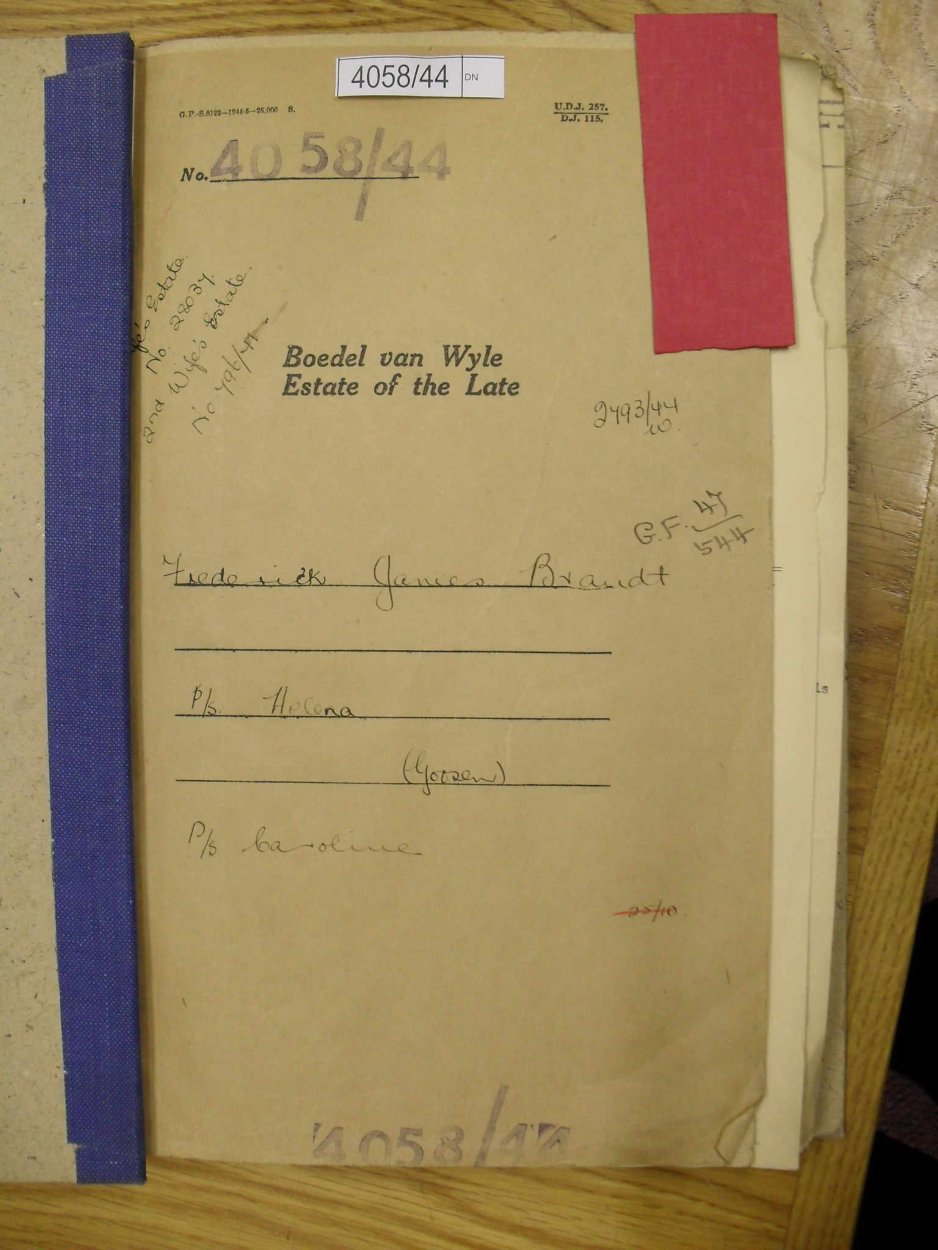 4058/44 DN
G.P.-S.8122—1944-5—25,000 S.
U.D.J. 257.
D.J. 115.
No. 4058/44
Estate
No. 28037.
2nd Wife's Estate.
No 796/41
Boedel van Wyle
Estate of the Late
2493/44
G.F. 47
544
Frederick James Brandt
P/s. Helena
(Goosen)
P/s Caroline
22/10.
4058/44